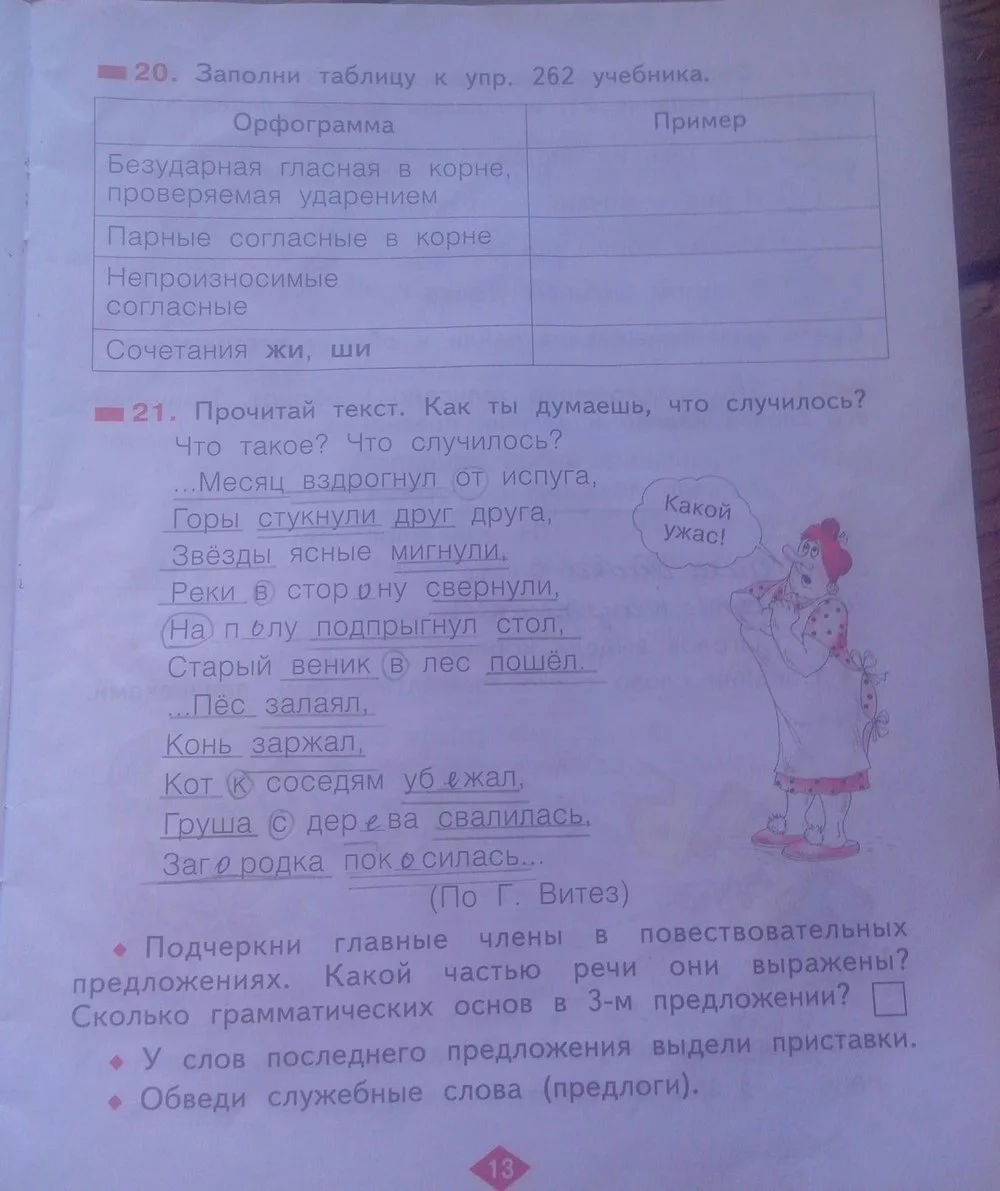 20. Заполни таблицу к упр. 262 учебника.
Орфограмма Пример
Безударная гласная в корне,
проверяемая ударением
Парные согласные в корне
Непроизносимые
согласные
Сочетания жи, ши
21. Прочитай текст. Как ты думаешь, что случилось?
Что такое? Что случилось?
...Месяц вздрогнул от испуга,
Горы стукнули друг друга,
Звёзды ясные мигнули,
Реки в сторону свернули,
На полу подпрыгнул стол,
Старый веник в лес пошёл.
...Пёс залаял,
Конь заржал,
Кот к соседям убежал,
Груша с дерева свалилась,
Загородка покосилась...
(По Г. Витез)
Какой
ужас!
Подчеркни главные члены в повествовательных
предложениях. Какой частью речи они выражены?
Сколько грамматических основ в 3-м предложении?
У слов последнего предложения выдели приставки.
Обведи служебные слова (предлоги).
13